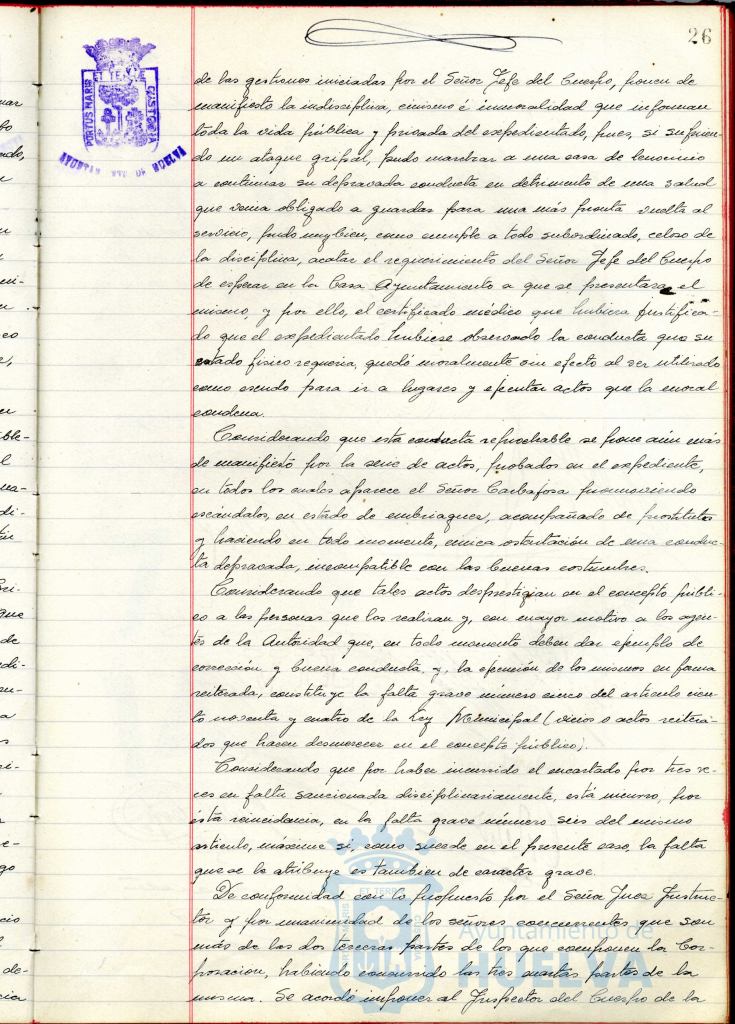 26
PORTUS MARIS ET TERRÆ CUSTODIA
AYUNTAMIENTO DE HUELVA
de las gestiones iniciadas por el Señor Jefe del Cuerpo, ponen de
manifiesto la indisciplina, cinismo é inmoralidad que informan
toda la vida pública y privada del expedientado, pues, si sufrien-
do un ataque gripal, pudo marchar a una casa de lenocinio
a continuar su depravada conducta en detrimento de una salud
que venia obligado a guardar para una más pronta vuelta al
servicio, pudo muy bien, como cumple a todo subordinado, celoso de
la disciplina, acatar el requerimiento del Señor Jefe del Cuerpo
de esperar en la Casa Ayuntamiento a que se presentara el
mismo, y por ello, el certificado médico que hubiera justifica-
do que el expedientado hubiese observado la conducta que su
estado fisico requeria, quedó moralmente sin efecto al ser utilizado
como escudo para ir a lugares y ejecutar actos que la moral
condena.
Considerando que esta conducta reprochable se pone aún más
de manifiesto por la serie de actos, probados en el expediente,
en todos los cuales aparece el Señor Carbajosa promoviendo
escándalos, en estado de embriaguez, acompañado de prostitutas
y haciendo en todo momento, cinica ostentación de una conduc-
ta depravada, incompatible con las buenas costumbres.
Considerando que tales actos desprestigian en el concepto públi-
co a las personas que los realizan y, con mayor motivo a los agen-
tes de la Autoridad que, en todo momento deben dar ejemplo de
corrección y buena conducta y, la ejecución de los mismos en forma
reiterada, constituye la falta grave número cinco del articulo cien-
to noventa y cuatro de la Ley Municipal (vicios o actos reitera-
dos que hacen desmerecer en el concepto público).
Considerando que por haber incurrido el encartado por tres ve-
ces en falta sancionada disciplinariamente, está incurso, por
ésta reincidencia, en la falta grave número seis del mismo
articulo, máxime si, como sucede en el presente caso, la falta
que se le atribuye es tambien de carácter grave.
De conformidad con lo propuesto por el Señor Juez Instruc-
tor y por unanimidad de los señores concurrentes que son
más de las dos terceras partes de los que componen la Cor-
poración, habiendo concurrido las tres cuartas partes de la
misma. Se acordó imponer al Inspector del Cuerpo de la
Ayuntamiento de
HUELVA